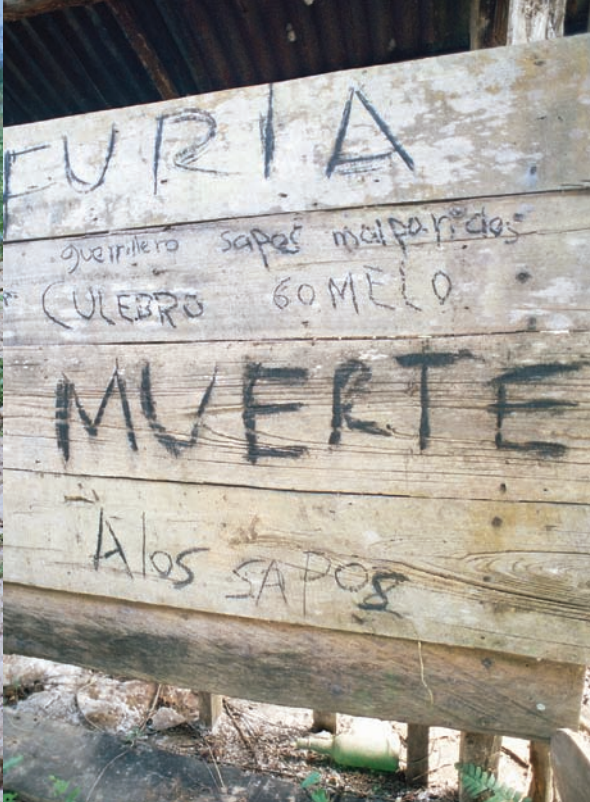 FURIA
guerrillero sapos malparidos
CULEBRO GOMELO
MUERTE
Alos SAPOS